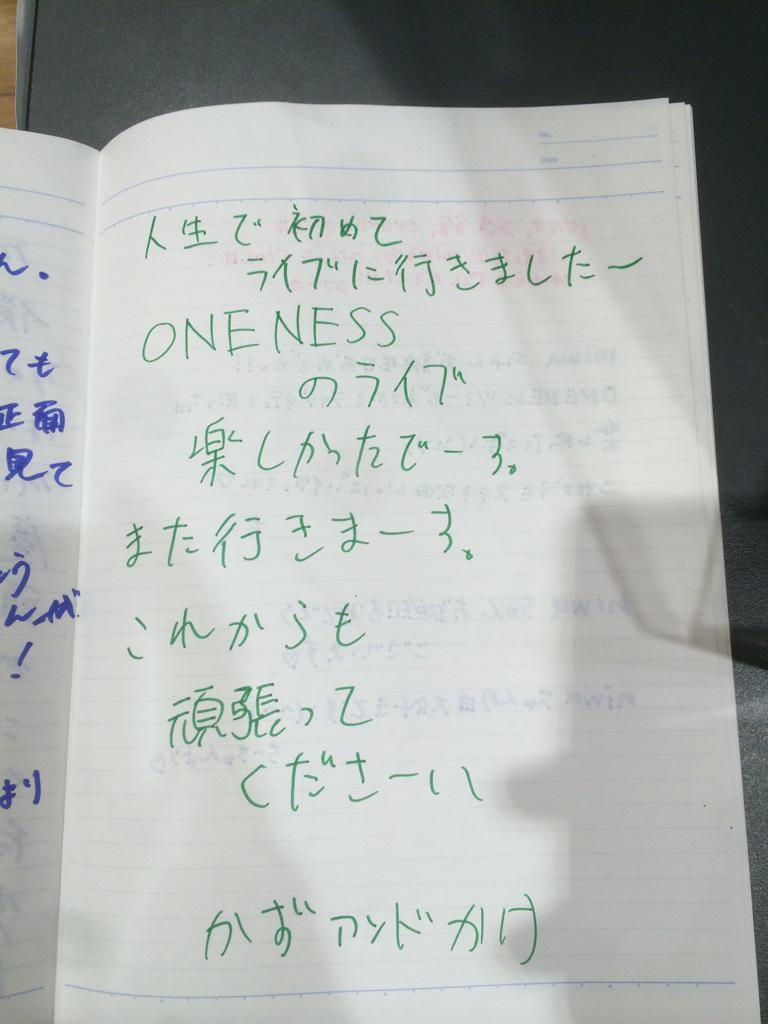 人生で初めて
ライブに行きました～
ONENESS
のライブ
楽しかったでーす。
また行きまーす。
これからも
頑張って
くださーい
かずアンドかけ
No.
Date
ん。
ても
正面
見て
う
んが
！
より